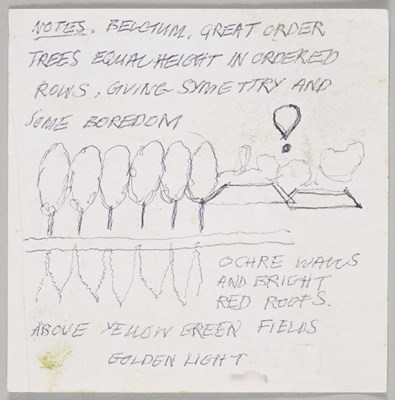 NOTES. BELGIUM. GREAT ORDER
TREES EQUAL HEIGHT IN ORDERED
ROWS, GIVING SYMETTRY AND
SOME BOREDOM
OCHRE WALLS
AND BRIGHT
RED ROOFS.
ABOVE YELLOW GREEN FIELDS
GOLDEN LIGHT